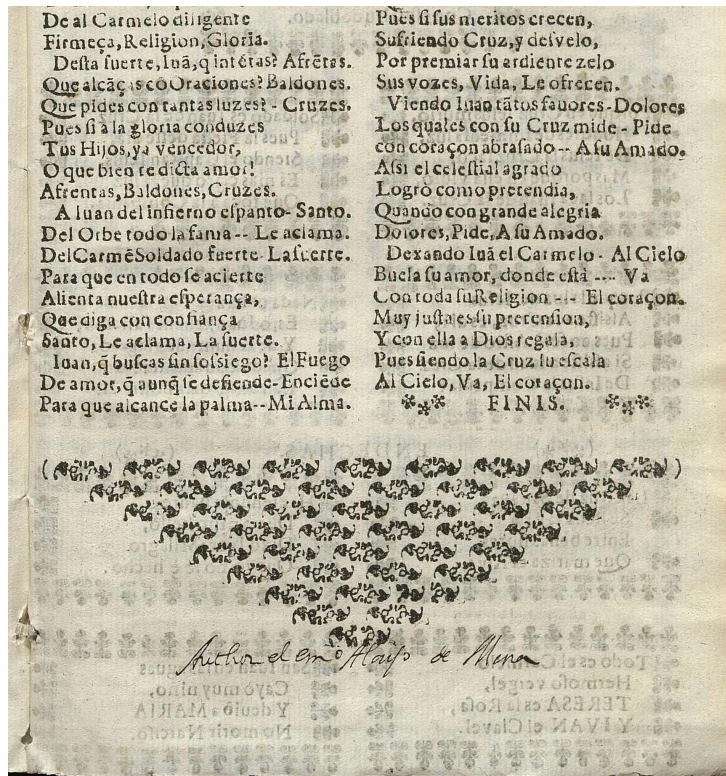 De al Carmelo diligente
Firmeça, Religion, Gloria.
Desta suerte, Iuã, q intẽtas? Afrẽtas.
Que alcãças cõ Oraciones? Baldones.
Que pides con tantas luzes? - Cruzes.
Pues si a la gloria conduzes
Tus Hijos, ya vencedor,
O que bien te dicta amor!
Afrentas, Baldones, Cruzes.
A Iuan del infierno espanto- Santo.
Del Orbe todo la fama -- Le aclama.
Del Carmẽ Soldado fuerte- La suerte.
Para que en todo se acierte
Alienta nuestra esperança,
Que diga con confiança
Santo, Le aclama, La suerte.
Iuan, q̃ buscas sin sossiego? El Fuego
De amor, q̃ aunq̃ se defiende-Enciẽde
Para que alcance la palma--Mi Alma.
Pues si sus meritos crecen,
Sufriendo Cruz, y desvelo,
Por premiar su ardiente zelo
Sus vozes, Vida, Le ofrecen.
Viendo Iuan tãtos fauores-Dolores
Los quales con su Cruz mide - Pide
con coraçon abrasado -- A su Amado.
Assi el celestial agrado
Logrò como pretendia,
Quando con grande alegria
Dolores, Pide, A su Amado.
Dexando Iuã el Carmelo - Al Cielo
Buela su amor, donde està --- Va
Con toda su Religion --- El coraçon.
Muy justa es su pretension,
Y con ella a Dios regala,
Pues siendo la Cruz su escala
Al Cielo, Va, El coraçon.
FINIS.
Author el de Mena
Todo es el
Hermoso vergel,
TERESA es la Rosa,
Y IVAN el Clavel.
Cayò muy niño,
Y deuiò a MARIA
No morir Narciso.